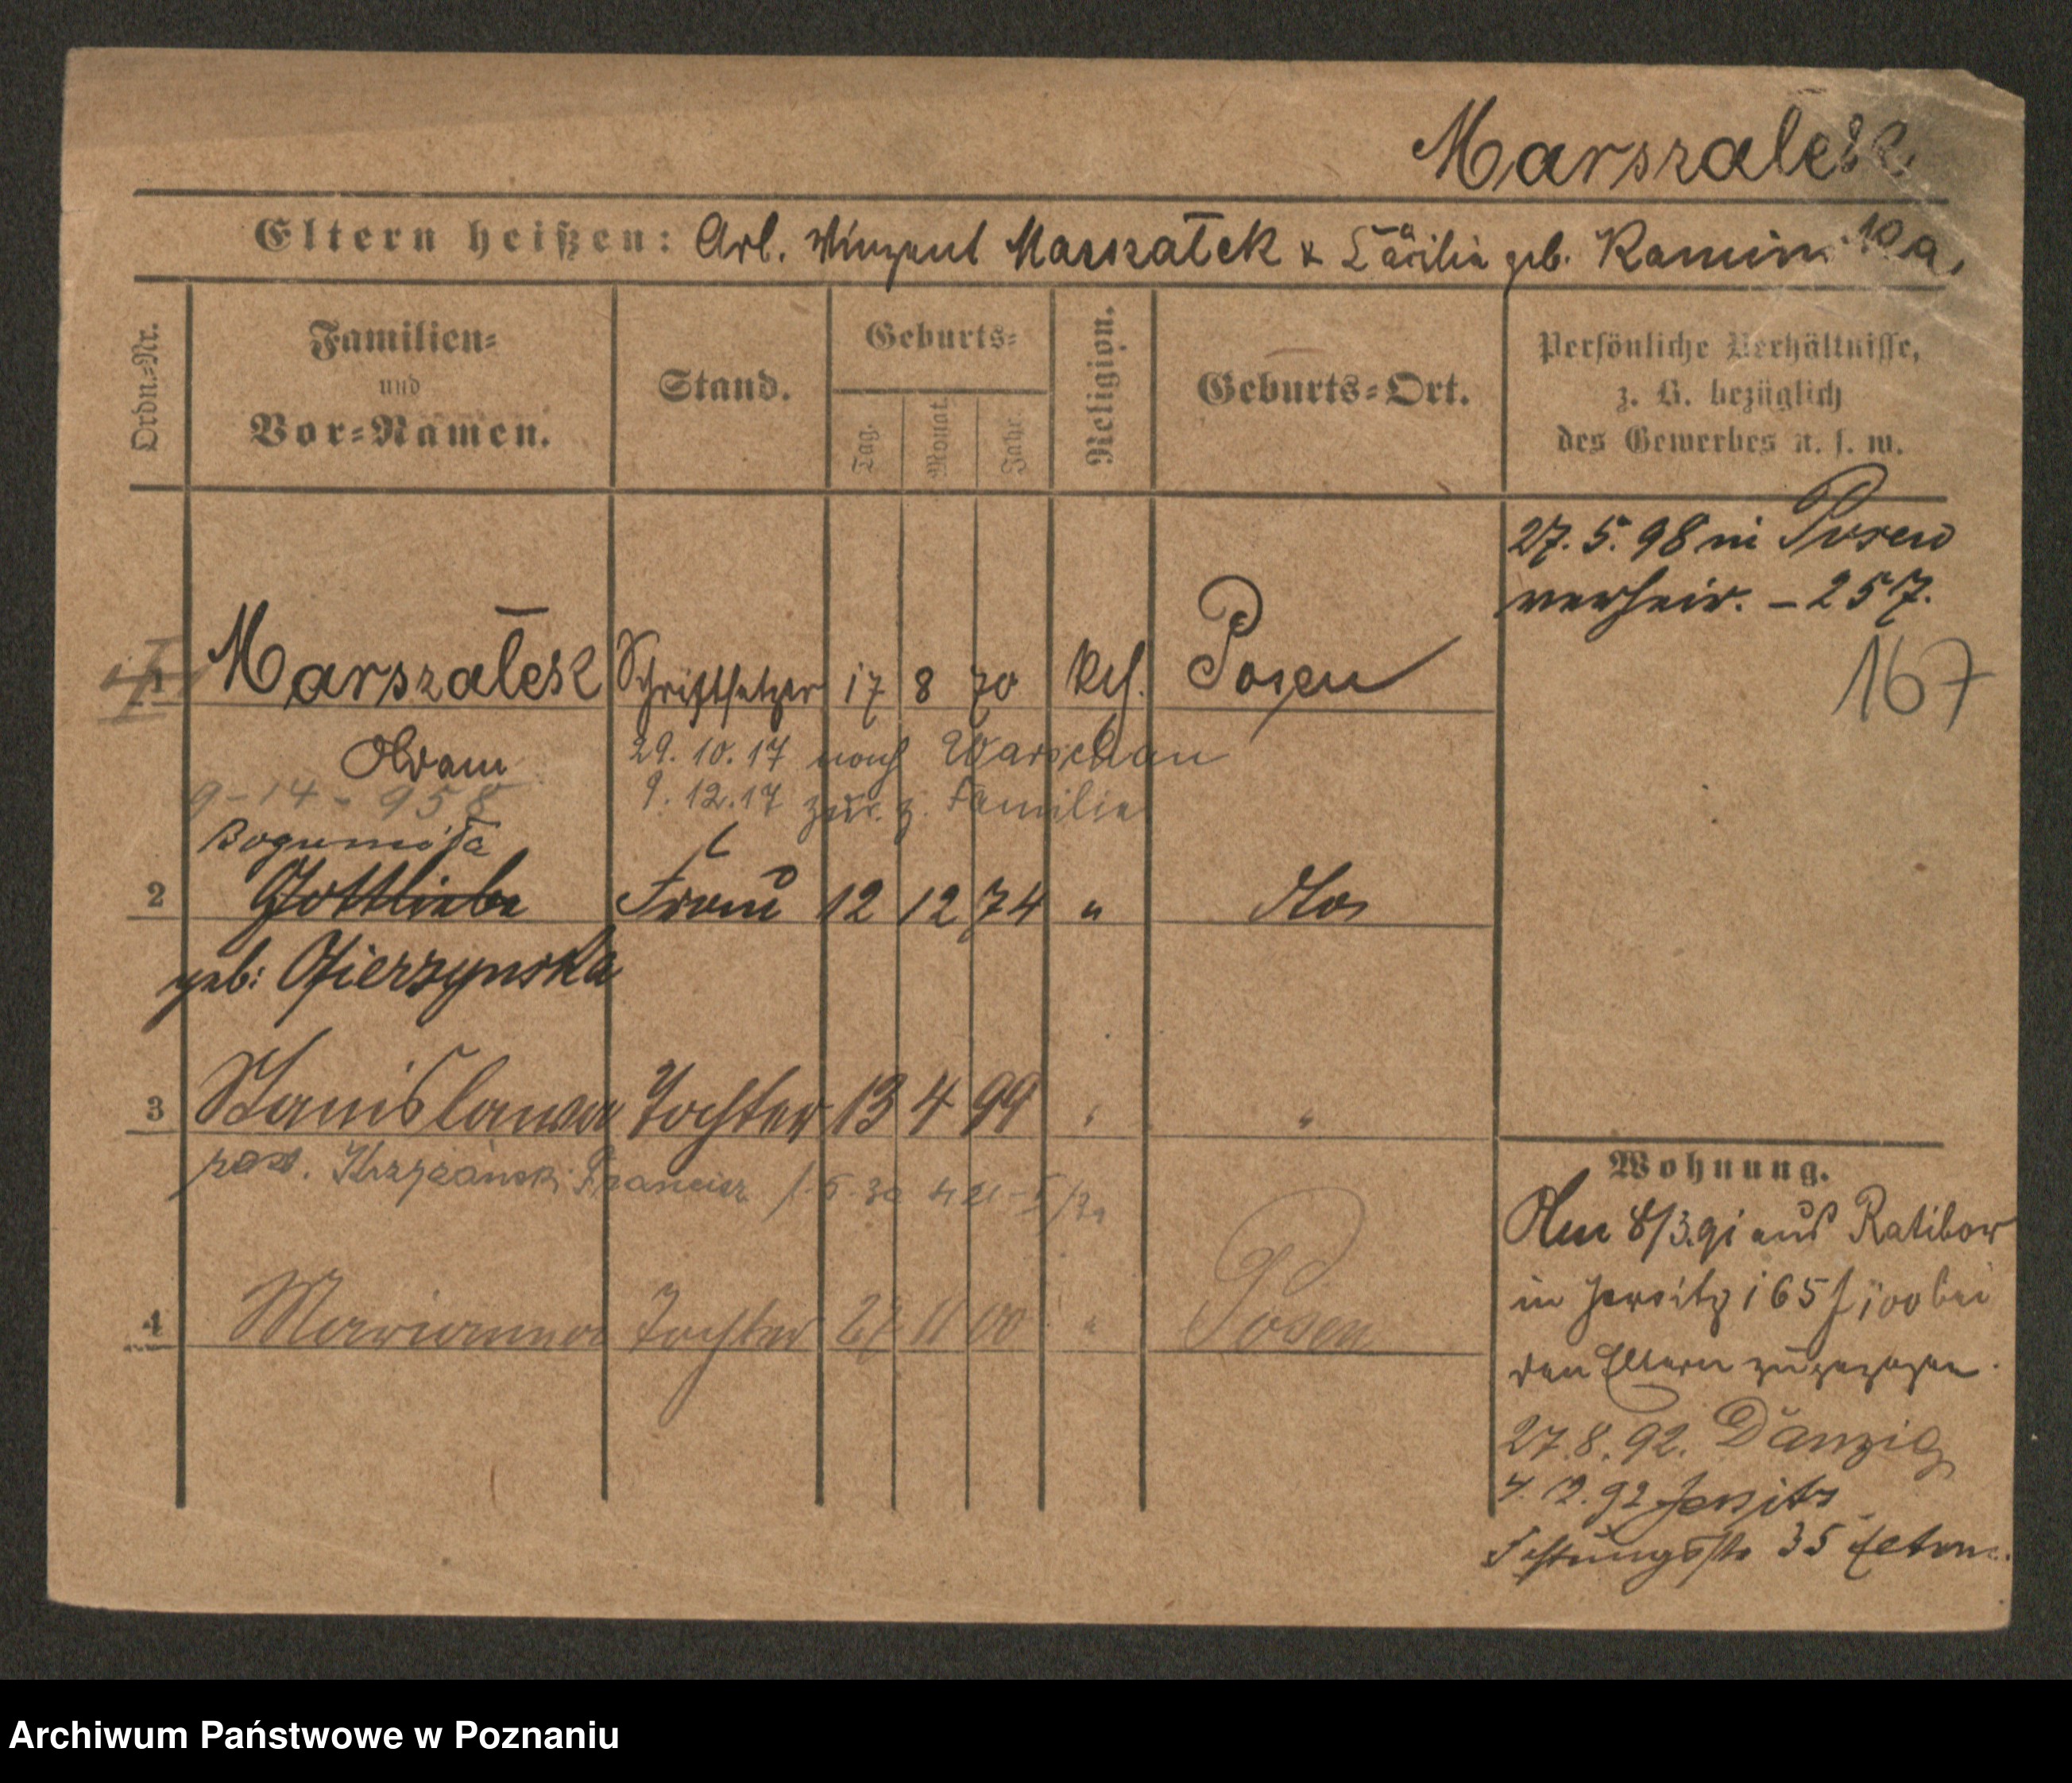 Marszalek
Eltern heißen: Arb. Winzent Marszałek & Cäcilia geb. Kamin
Ordn.-Nr.
Familien-
und
Vor-Namen.
Stand.
Geburts-
Tag.
Monat.
Jahr.
Religion.
Geburts-Ort.
Persönliche Verhältnisse,
z. B. bezüglich
des Gewerbes u. s. w.
27. 5. 98 in Posen
verheir. - 257.
167
1 Marszałek Schriftsetzer 17 8 70 kth. Posen
Adam 29. 10. 17 nach Warschau
9-14-958 9. 12. 17 zur. z. Familie
Bogumiła
2 Gottliebe Frau 12 12 74 "
geb: Gierzynska
3 Stanislawa Tochter 13 4 99 " "
4 Marianna Tochter 27 11 00 " Posen
Wohnung.
Am 8/3.91 aus Ratibor
in Jersitz 165 bei
den Eltern zugezogen.
27. 8. 92. Danzig
92 Jersitz
Festungsstr 35 Eltern.
Archiwum Państwowe w Poznaniu